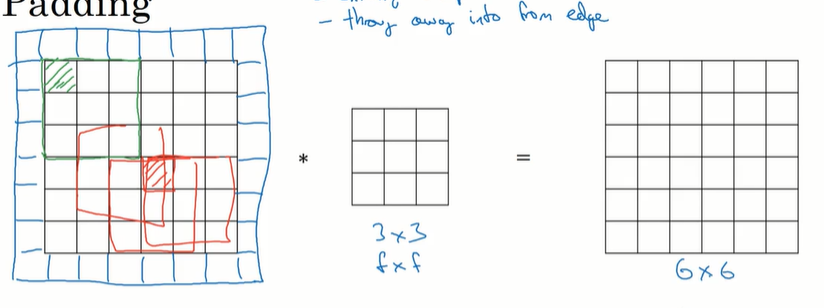 Padding
- throw away info from edge
*
=
3×3
f×f
6×6